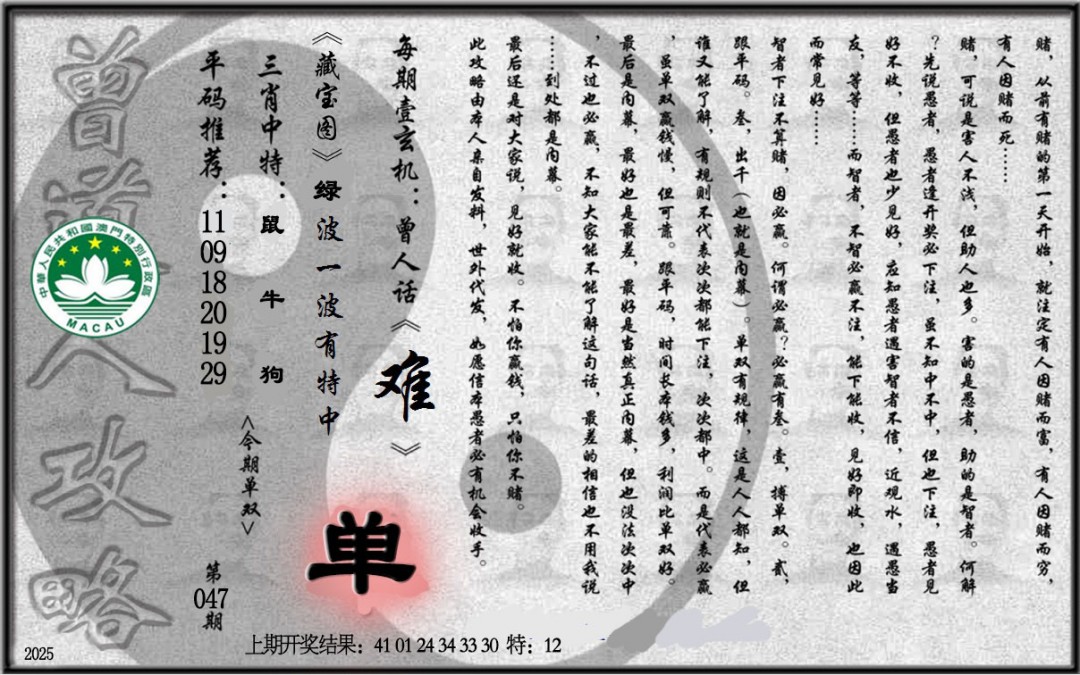 赌，从前有赌的第一天开始，就注定有人因赌而富，有人因赌而穷，
有人因赌而死……
赌，可说是害人不浅，但助人也多。害的是愚者，助的是智者。何解
？先说愚者，愚者逢开奖必下注，虽不知中不中，但也下注，愚者见
好不收，但愚者也少见好，应知愚者遇害智者不信，近观水，遇愚当
友，等等……而智者，不智必赢不注，能下能收，见好即收，也因此
而常见好……
智者下注不算赌，因必赢。何谓必赢？必赢有叁。壹，搏单双。贰，
跟平码。叁，出千（也就是内幕）。单双有规律，这是人人都知，但
谁又能了解，有规则不代表次次都能下注，次次都中。而是代表必赢
，虽单双赢钱慢，但可靠。跟平码，时间长本钱多，利润比单双好。
最后是内幕，最好也是最差，最好是当然真正内幕，但也没法次次中
，不过也必赢，不知大家能不能了解这句话，最差的相信也不用我说
……到处都是内幕。
最后还是对大家说，见好就收。不怕你赢钱，只怕你不赌。
此攻略由本人亲自发料，世外代发，如愿信本愚者必有机会收手。
每期壹玄机：曾人话《难》
《藏宝图》绿波一波有特中
三肖中特：鼠 牛 狗
平码推荐：11 09 18 20 19 29
<今期单双>
单
第047期
曾道人攻略
中華人民共和國澳門特別行政區
MACAU
上期开奖结果：41 01 24 34 33 30 特：12
2025